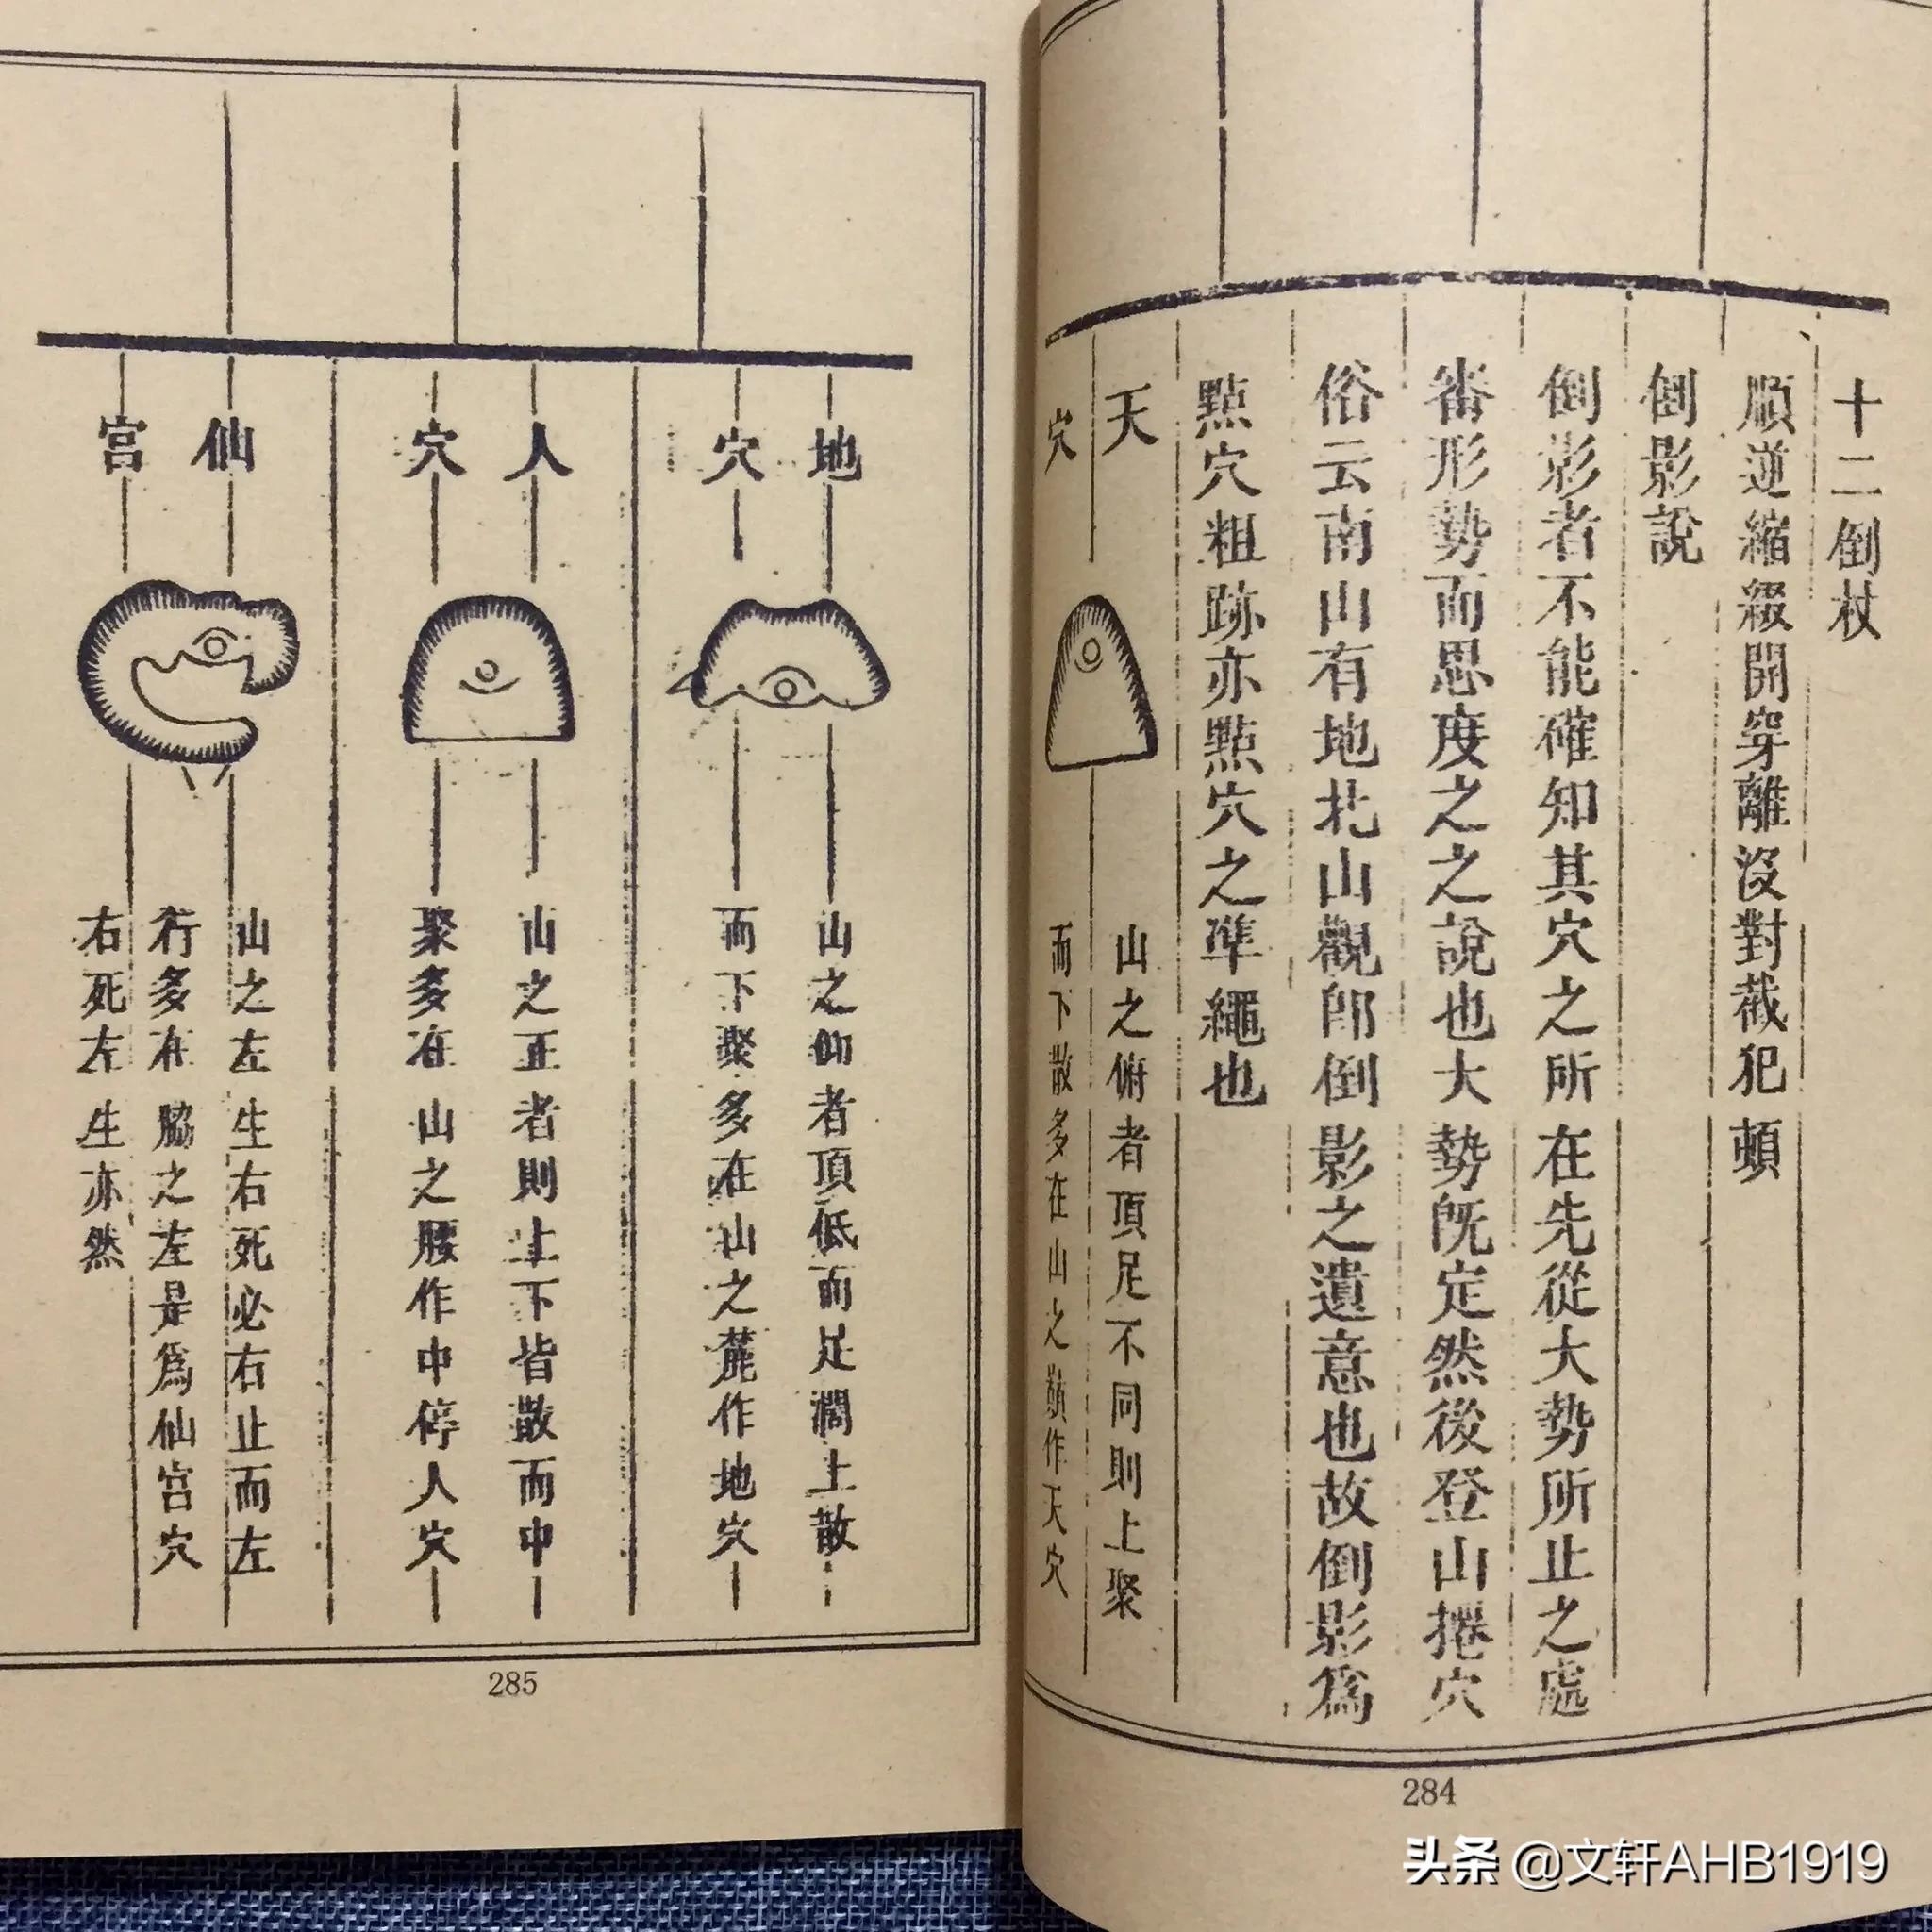 十二倒杖
順逆縮綴開穿離沒對截犯頓
倒影說
倒影者不能確知其穴之所在先從大勢所止之處
審形勢而思度之之說也大勢既定然後登山捲穴
俗云南山有地北山觀郎倒影之遺意也故倒影為
點穴粗跡亦點穴之準繩也
天穴
山之俯者頂足不同則上聚
而下散多在山之巔作天穴
284
地穴
山之仰者頂低而足濶上散
而下聚多在山之麓作地穴
人穴
山之正者則上下皆散而中
聚多在山之腰作中停人穴
仙宮
山之左生右死必右止而左
行多在脇之左是為仙宮穴
右死左生亦然
285
头条 @文轩AHB1919